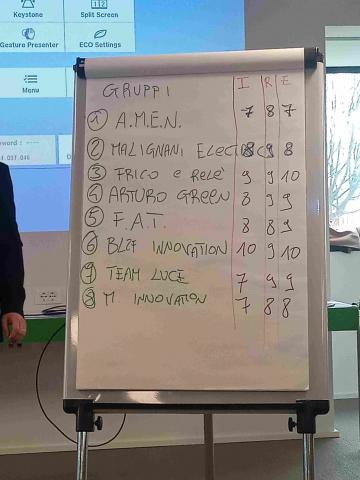 Keystone
Split Screen
Gesture Presenter
ECO Settings
Menu
GRUPPI I R E
1 A.M.E.N. 7 8 7
2 MALIGNANI ELECTRICS 8 9 8
3 FRICO e RELE' 9 9 10
4 ARTURO GREEN 8 9 9
5 F.A.T. 8 8 9
6 BLZF INNOVATION 10 9 10
9 TEAM LUCE 7 9 9
8 M INNOVATION 7 8 8